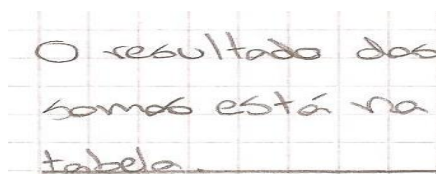 O resultado das
somas está na
tabela.